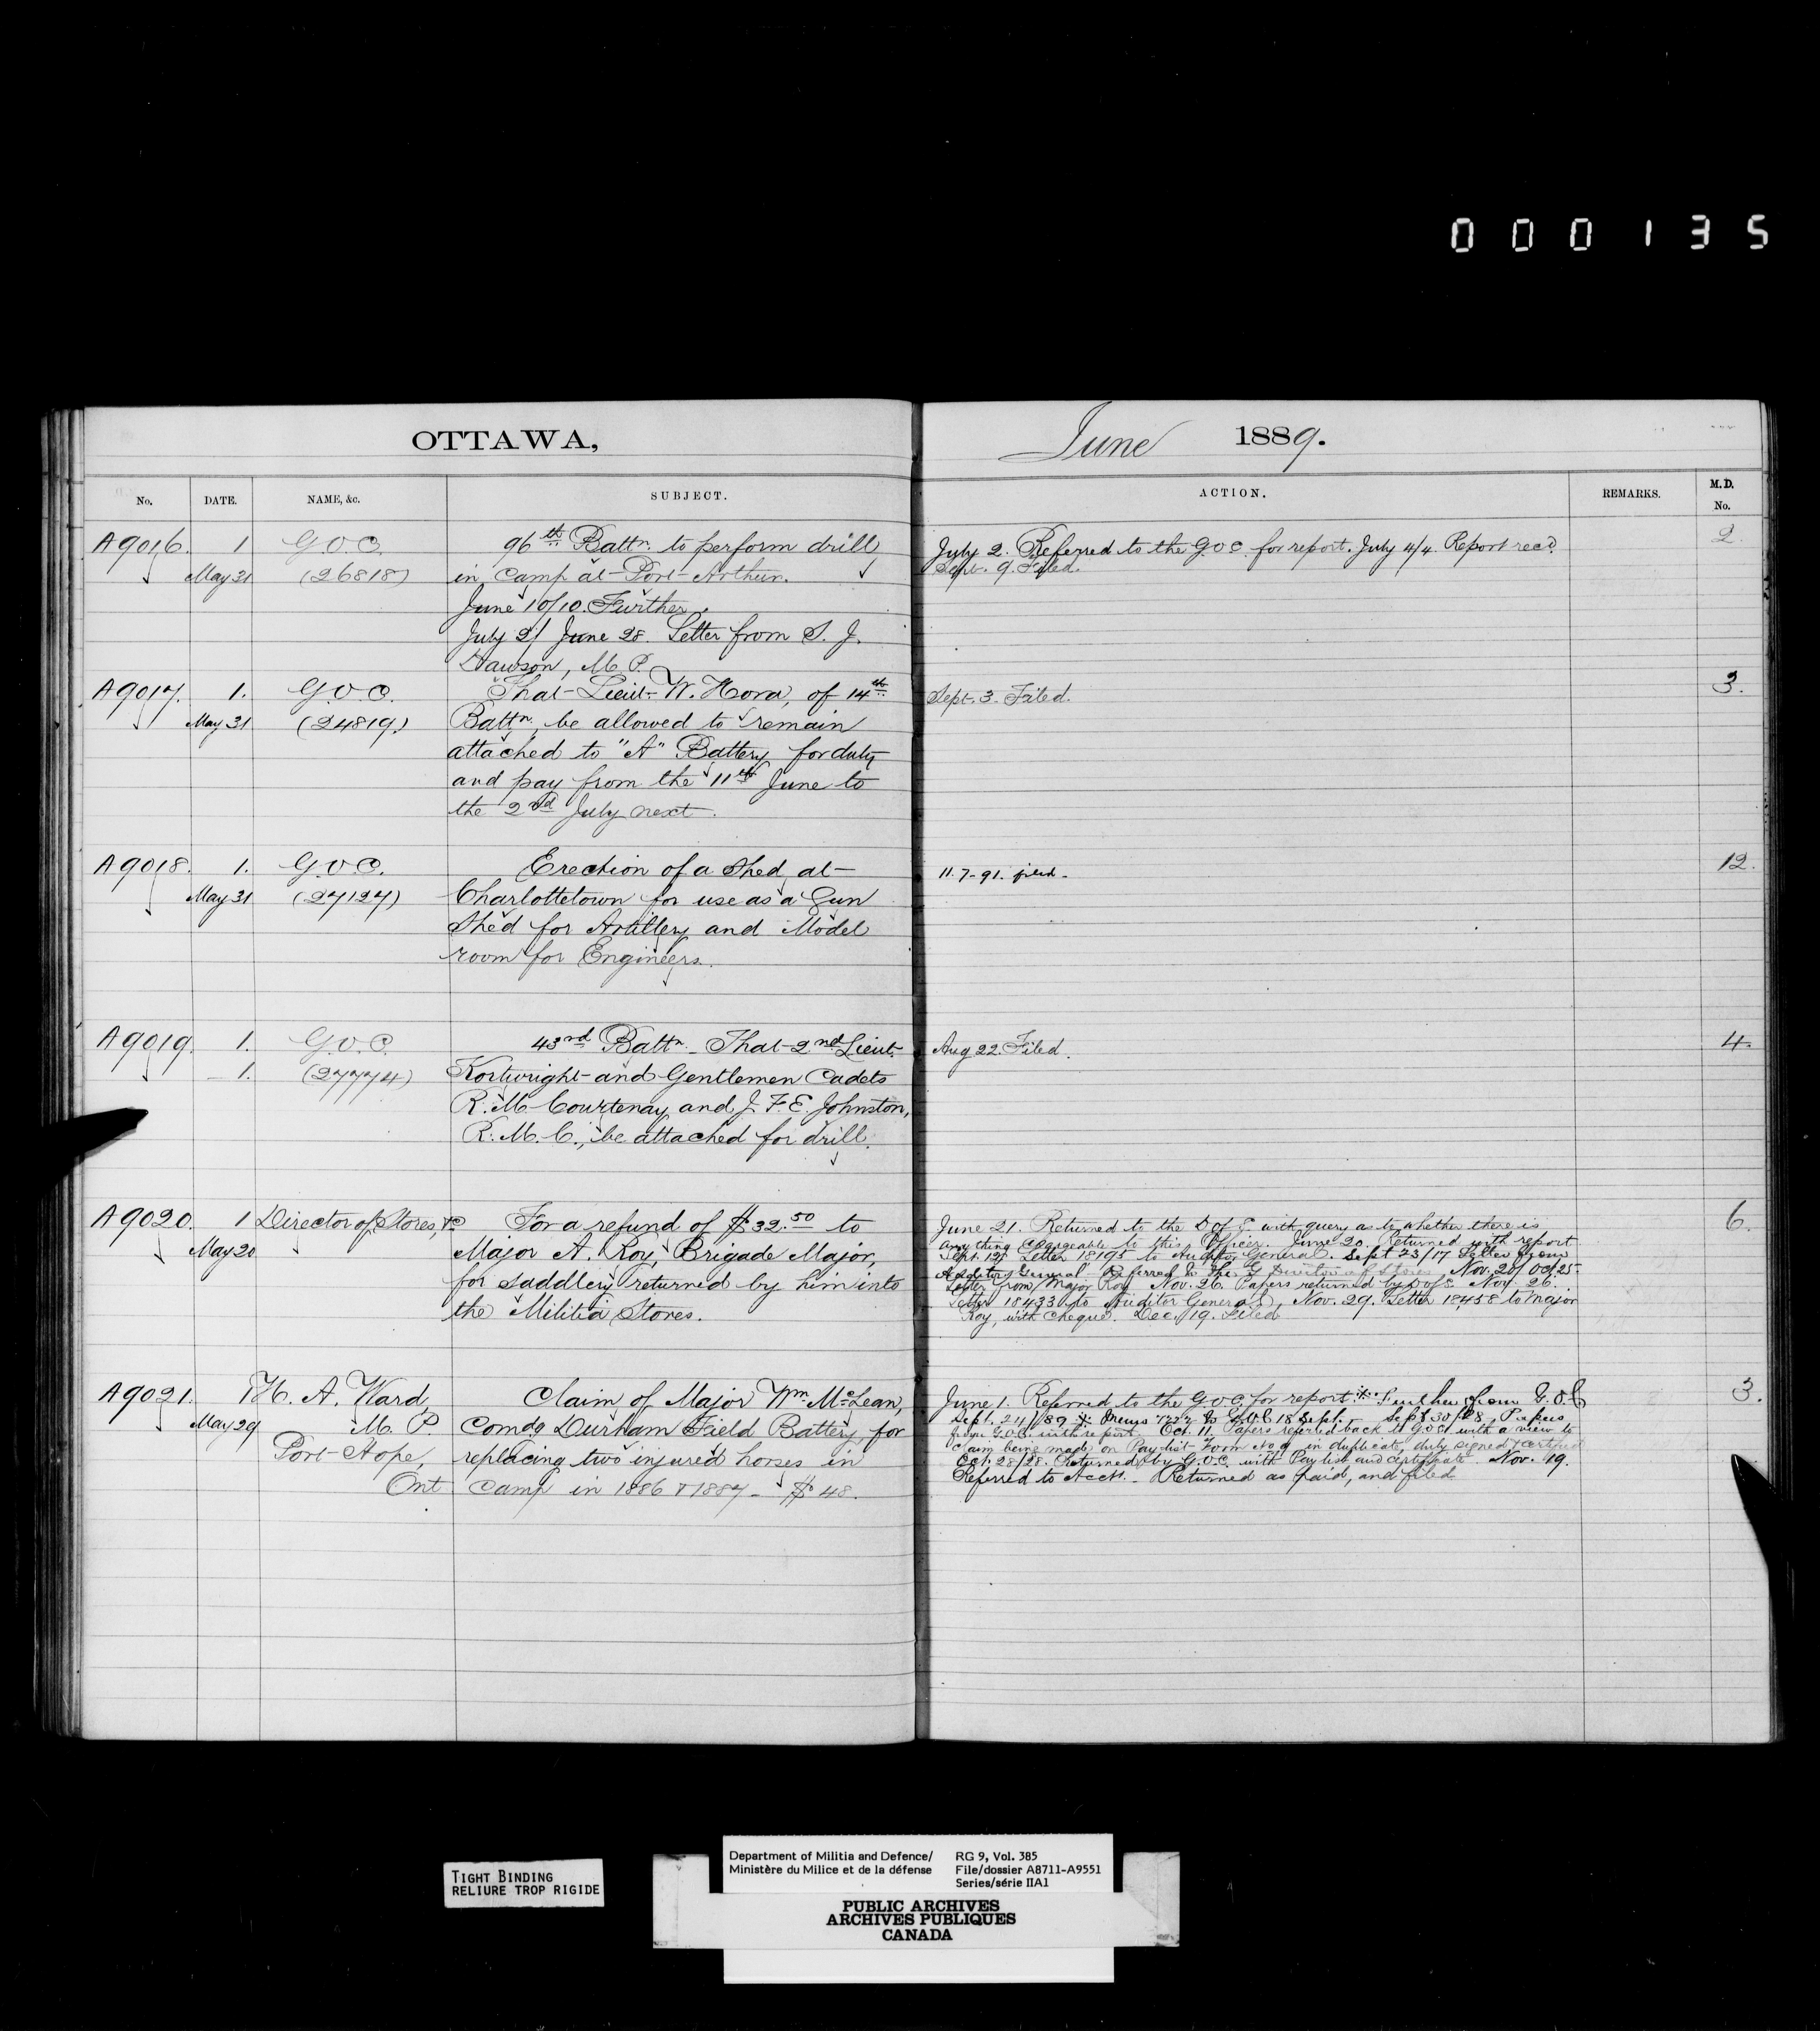 000135
OTTAWA, June 1889.
No. DATE. NAME, &c. SUBJECT. ACTION. REMARKS. M.D. No.
A9016. 1 G.O.C. 96th Battn. to perform drill
May 31 (26818) in Camp at Port Arthur.
June 10/10. Further.
July 2/ June 28. Letter from S. J.
Dawson, M.P.
July 2. Referred to the G.O.C. for report. July 4/4. Report recd.
Sept. 9. Filed.
2.
A9017. 1. G.O.C. That Lieut. W. Hora, of 14th
May 31 (24819.) Battn., be allowed to remain
attached to "A" Battery for duty
and pay from the 11th June to
the 2nd July next.
Sept. 3. Filed.
3.
A9018. 1. G.O.C. Erection of a Shed at
May 31 (27127) Charlottetown for use as a Gun
Shed for Artillery and Model
room for Engineers.
11.7-91. filed.
12.
A9019. 1. G.O.C. 43rd Battn. That 2nd Lieut.
1. (27774) Kortwright and Gentlemen Cadets
R. M. Courtenay and J. F. E. Johnston,
R. M. C., be attached for drill.
Aug 22. Filed.
4.
A9020. 1 Director of Stores, &c For a refund of $32.50 to
May 20 Major A. Roy, Brigade Major,
for saddlery returned by him into
the Militia Stores.
June 21. Returned to the D of S. with query as to whether there is
any thing chargeable to this Officer. June 20. Returned with report
Sept. 12. Letter 18195 to Auditor General. Sept 23/17 Letter from
Auditor General. Referred to the Director of Stores Nov. 20/ Oct 25.
Letter from Major Roy Nov. 26. Papers returned by D of S. Nov. 26.
Letter 18433 to Auditor General, Nov. 29. Letter 18458 to Major
Roy, with cheque. Dec. 19. Filed
6.
A9021. 1 H. A. Ward, Claim of Major Wm. McLean,
May 29 M. P. Comdg Durham Field Battery, for
Port Hope, replacing two injured horses in
Ont Camp in 1886 & 1887 - $48.
June 1. Referred to the G.O.C. for report. Further from G.O.C.
to G.O.C. 18 Sept. Sept 30/28, Papers
from G.O.C. with report. Oct. 11. Papers referred back to G.O.C. with a view to
claim being made on Pay-list Form in duplicate, duly signed & certified
Oct. 28/28. Returned by G.O.C. with Pay list and certificate. Nov. 19.
Referred to Acct. Returned as paid, and filed
3.
TIGHT BINDING
RELIURE TROP RIGIDE
Department of Militia and Defence/
Ministère du Milice et de la défense
RG 9, Vol. 385
File/dossier A8711-A9551
Series/série IIA1
PUBLIC ARCHIVES
ARCHIVES PUBLIQUES
CANADA